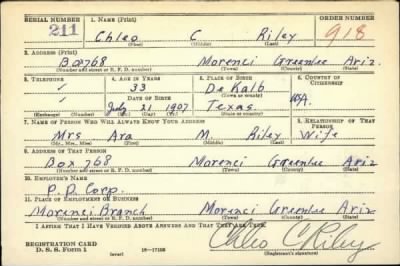 SERIAL NUMBER 1. NAME (Print) ORDER NUMBER
211 Chleo C Riley 918
(First) (Middle) (Last)
2. ADDRESS (Print)
Box 768 Morenci Greenlee Ariz.
(Number and street or R. F. D. number) (Town) (County) (State)
3. TELEPHONE 4. AGE IN YEARS 5. PLACE OF BIRTH 6. COUNTRY OF CITIZENSHIP
33 De Kalb
DATE OF BIRTH (Town or county) USA.
July 21 1907 Texas.
(Exchange) (Number) (Mo.) (Day) (Yr.) (State or country)
7. NAME OF PERSON WHO WILL ALWAYS KNOW YOUR ADDRESS 8. RELATIONSHIP OF THAT PERSON
Mrs Ara M. Riley Wife
(Mr., Mrs., Miss) (First) (Middle) (Last)
9. ADDRESS OF THAT PERSON
Box 768 Morenci Greenlee Ariz
(Number and street or R. F. D. number) (Town) (County) (State)
10. EMPLOYER'S NAME
P. D. Corp.
11. PLACE OF EMPLOYMENT OR BUSINESS
Morenci Branch Morenci Greenlee Ariz
(Number and street or R. F. D. number) (Town) (County) (State)
I AFFIRM THAT I HAVE VERIFIED ABOVE ANSWERS AND THAT THEY ARE TRUE.
REGISTRATION CARD Chleo C Riley
D. S. S. Form 1 (over) 16-17105 (Registrant's signature)